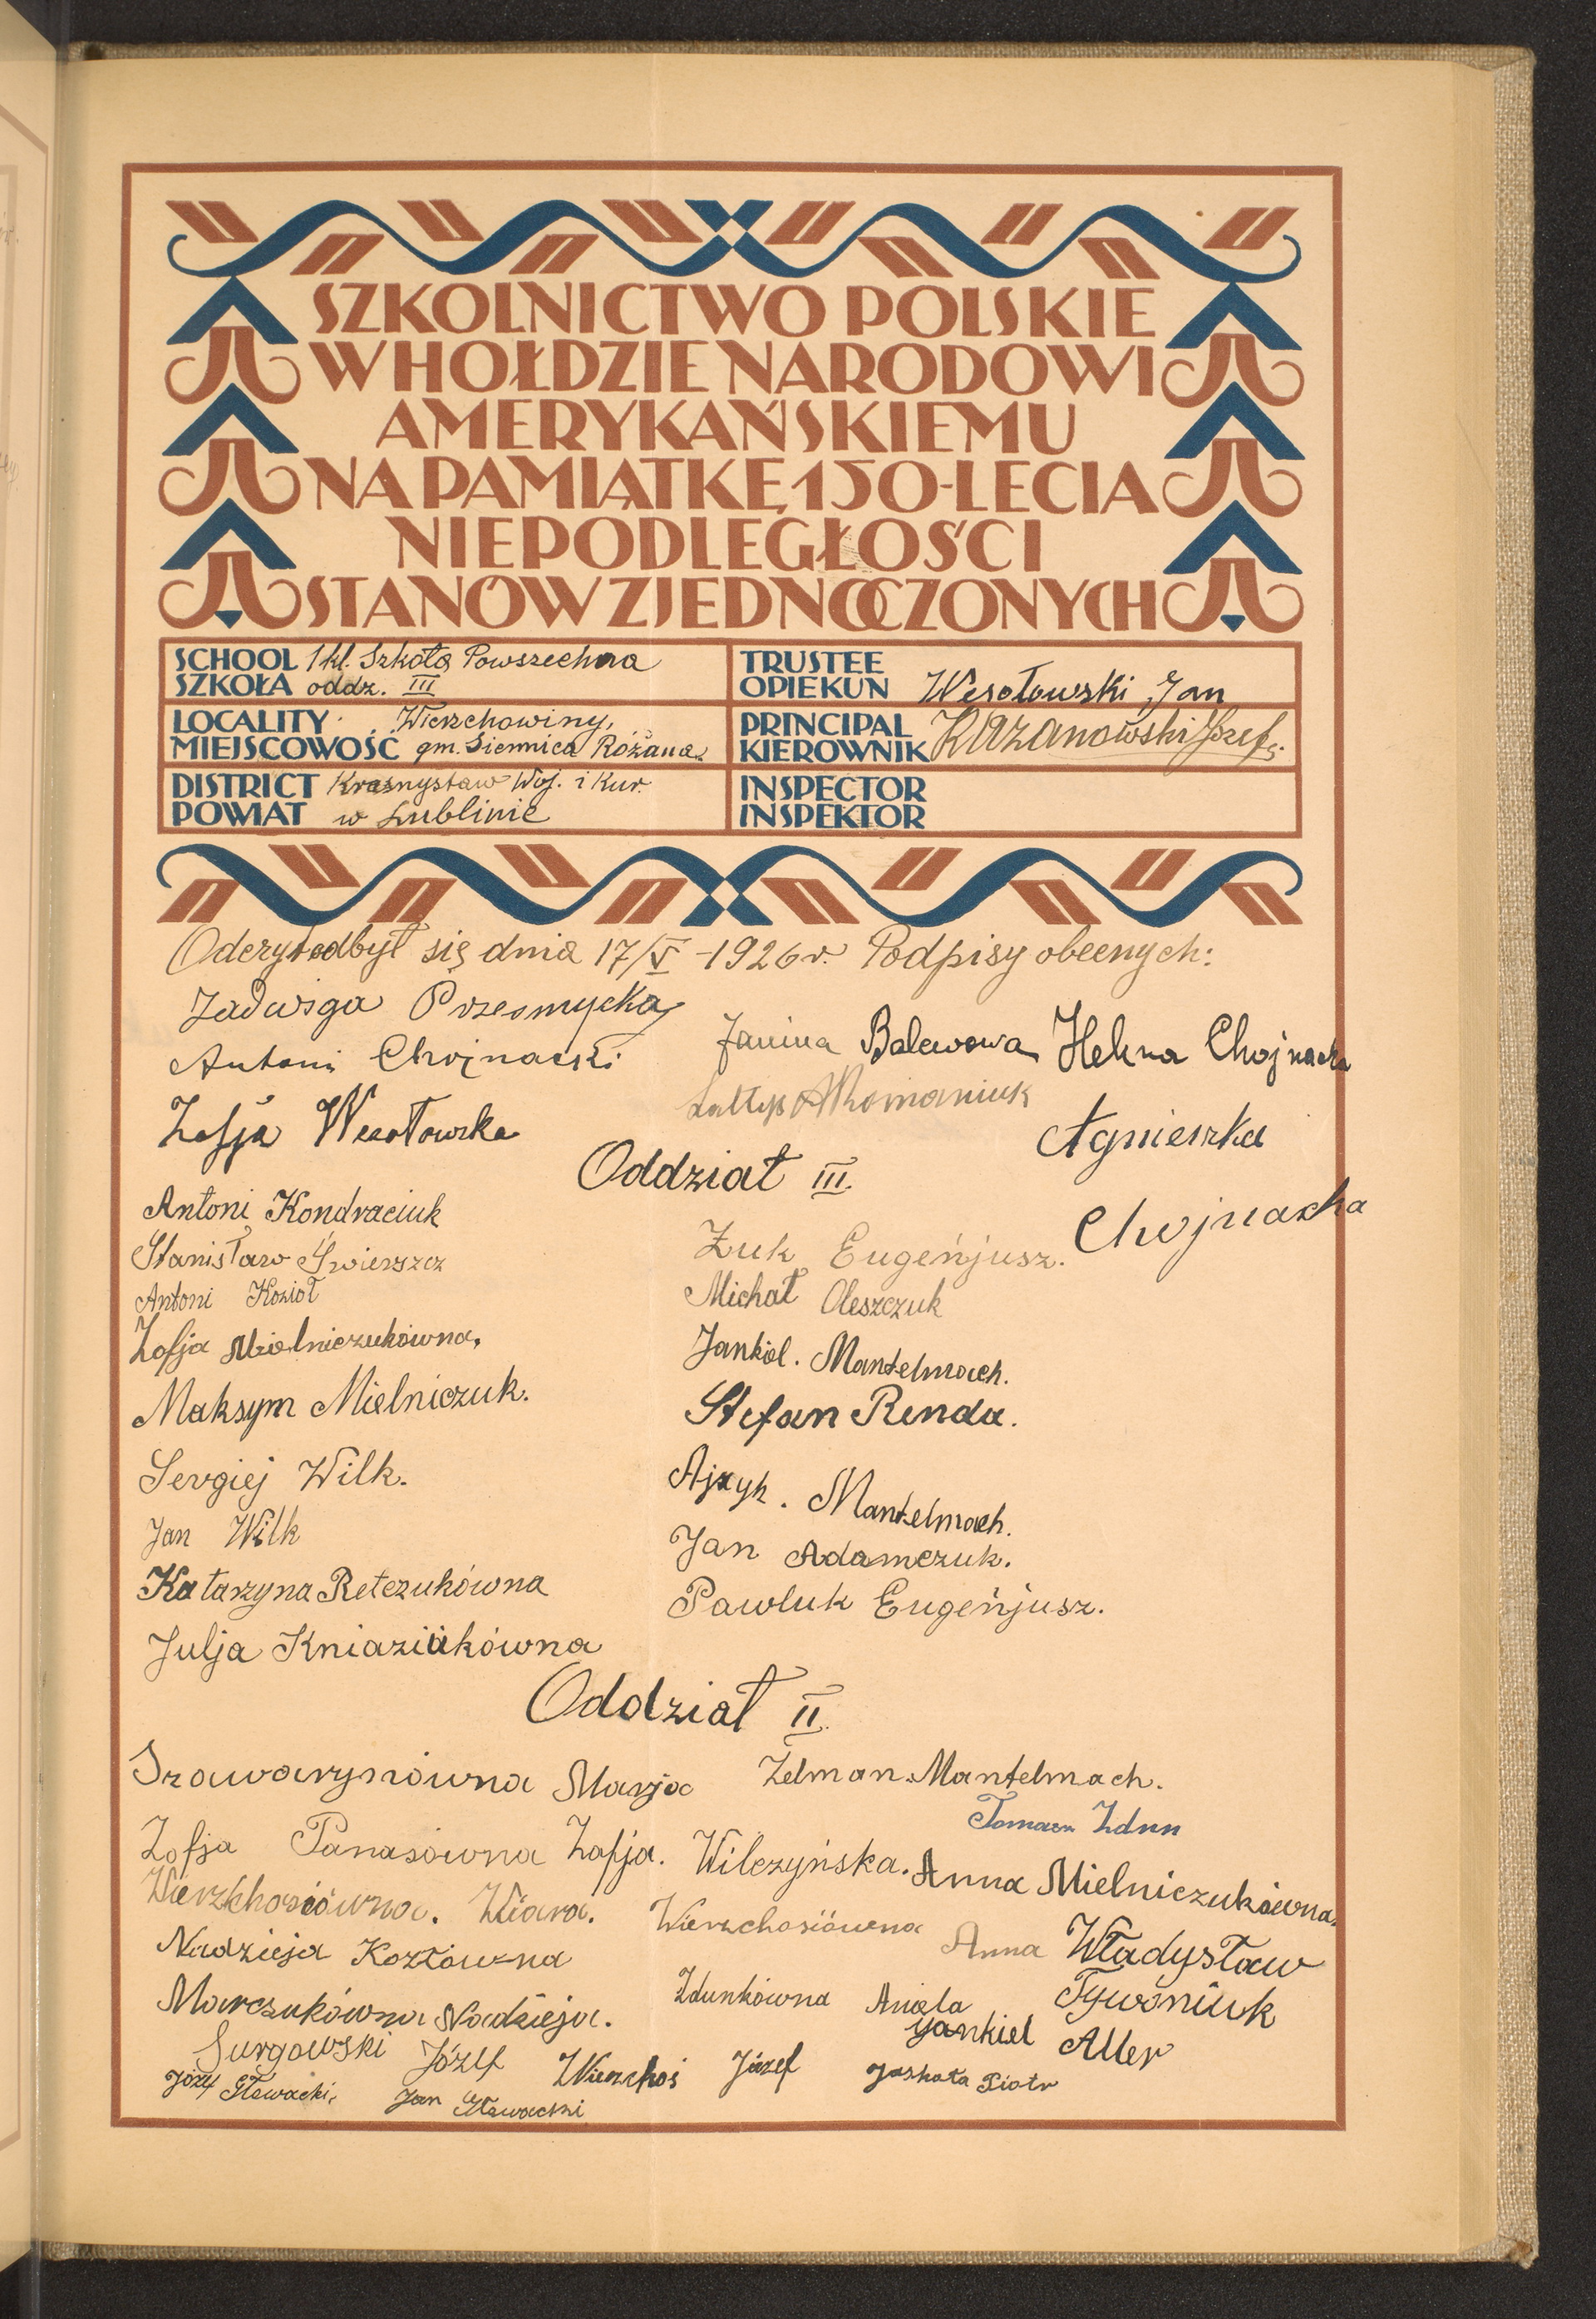 SZKOLNICTWO POLSKIE
W HOŁDZIE NARODOWI
AMERYKAŃSKIEMU
NA PAMIĄTKĘ 150-LECIA
NIEPODLEGŁOŚCI
STANÓW ZJEDNOCZONYCH
SCHOOL SZKOŁA 1 kl. Szkoła Powszechna
oddz. III
TRUSTEE
OPIEKUN Wesołowski Jan
LOCALITY Wierzchowiny,
MIEJSCOWOŚĆ gm. Siennica Różana
PRINCIPAL
KIEROWNIK Kazanowski Józef
DISTRICT Krasnystaw Woj. i Kur.
POWIAT w Lublinie
INSPECTOR
INSPEKTOR
Odczyt odbył się dnia 17/V -1926 r. Podpisy obecnych:
Jadwiga Przesmycka
Antoni Chojnacki
Janina Balewowa Helena Chojnacka
Zofja Wesołowska
Sołtys A Romaniuk
Agnieszka
Chojnacka
Oddział III.
Antoni Kondraciuk
Stanisław Świerszcz
Antoni Kozioł
Zofja Mielniczukówna.
Maksym Mielniczuk.
Sergiej Wilk.
Jan Wilk
Katarzyna Retczukówna
Julja Kniaziukówna
Żuk Eugeńjusz.
Michał Oleszczuk
Jankiel. Mantelmach.
Stefan Renda.
Ajzyk. Mantelmach.
Jan Adamczuk.
Pawluk Eugeńjusz.
Oddział II.
Szawarynówna Marja Zelman Mantelmach.
Tomasz Zdun
Zofja Panasówna Zofja. Wilczyńska. Anna Mielniczukówna.
Wierzchosiówna. Wiara. Wierzchosiówna Anna Władysław
Nadzieja Kozłówna
Tywoniuk
Marczukówna Nadzieja. Zdunkówna Aniela
Jankiel Aller
Surgowski Józef Wierzchoś Józef Jaskota Piotr
Józef Głowacki, Jan Głowacki